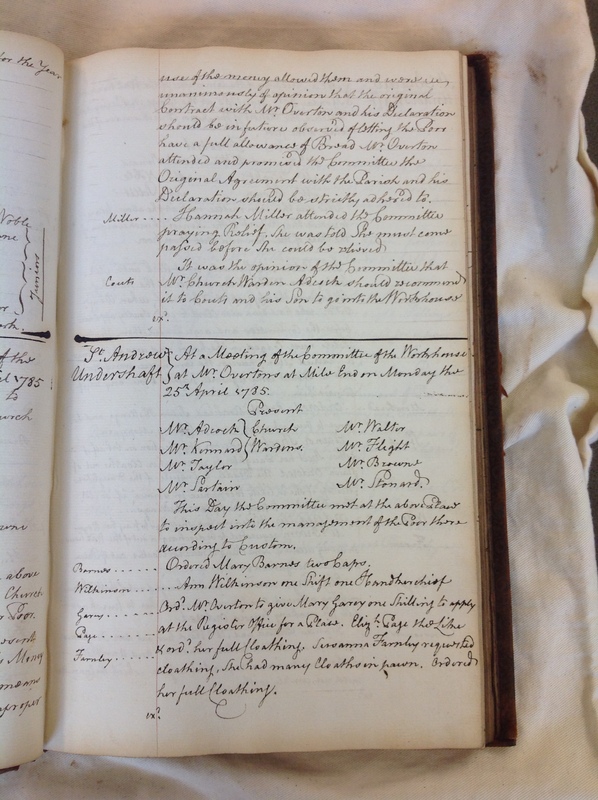 for the Year
use of the money allowed them and were
unanimously of opinion that the original
Contract with Mr. Overton and his Declaration
should be in future observed of letting the Poor
have a full allowance of Bread Mr. Overton
attended and promised the Committee the
Original Agreement with the Parish and his
Declaration should be strictly adhered to.
Miller .... Hannah Miller attended the Committee
praying Relief, She was told She must come
passed before She could be relieved
It was the opinion of the Committee that
Couts Mr. Church Warden Adcock should recommend
it to Couts and his Son to go into the Workhouse
exd.
St. Andrew At a Meeting of the Committee of the Workhouse
Undershaft at Mr. Overtons at Mile End on Monday the
25th April 1785.
Present
Mr. Adcock Church Mr. Walter
Mr. Kinnard Wardens. Mr. Flight
Mr. Taylor Mr. Browne
Mr. Sartain Mr. Stonard.
This Day the Committee met at the above Place
to inspect into the management of the Poor there
according to Custom.
Barnes ....... Ordered Mary Barnes two Caps.
Wilkinson ....... Ann Wilkinson one Shift one Handkerchief
Garey ....... Ord. Mr. Overton to give Mary Garey one Shilling to apply
Page ....... at the Register Office for a Place. Eliz.th Page the Like
Farnley ....... & ord. her full Cloathing. Susanna Farnley requested
cloathing, She had many Cloaths in pawn. Ordered
her full Cloathing.
exd.